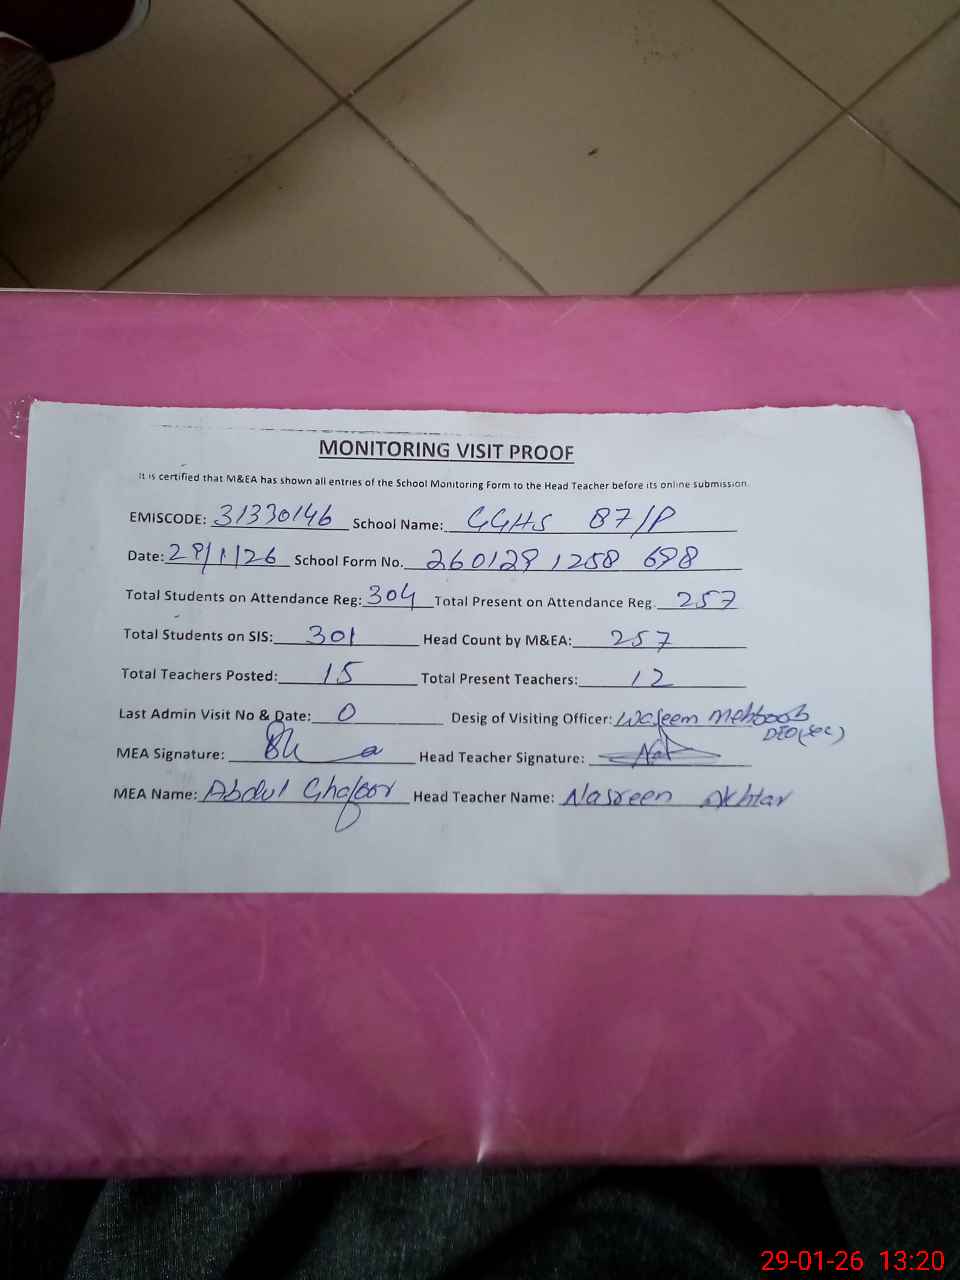 MONITORING VISIT PROOF
It is certified that M&EA has shown all entries of the School Monitoring Form to the Head Teacher before its online submission.
EMISCODE: 31330146 School Name: GGHS 87/P
Date: 29/1/26 School Form No. 260129 1258 698
Total Students on Attendance Reg: 304 Total Present on Attendance Reg. 257
Total Students on SIS: 301 Head Count by M&EA: 257
Total Teachers Posted: 15 Total Present Teachers: 12
Last Admin Visit No & Date: 0 Desig of Visiting Officer: Waseem Mehboob
DEO(sec)
MEA Signature: Head Teacher Signature:
MEA Name: Abdul Ghafoor Head Teacher Name: Nasreen Akhtar
29-01-26 13:20